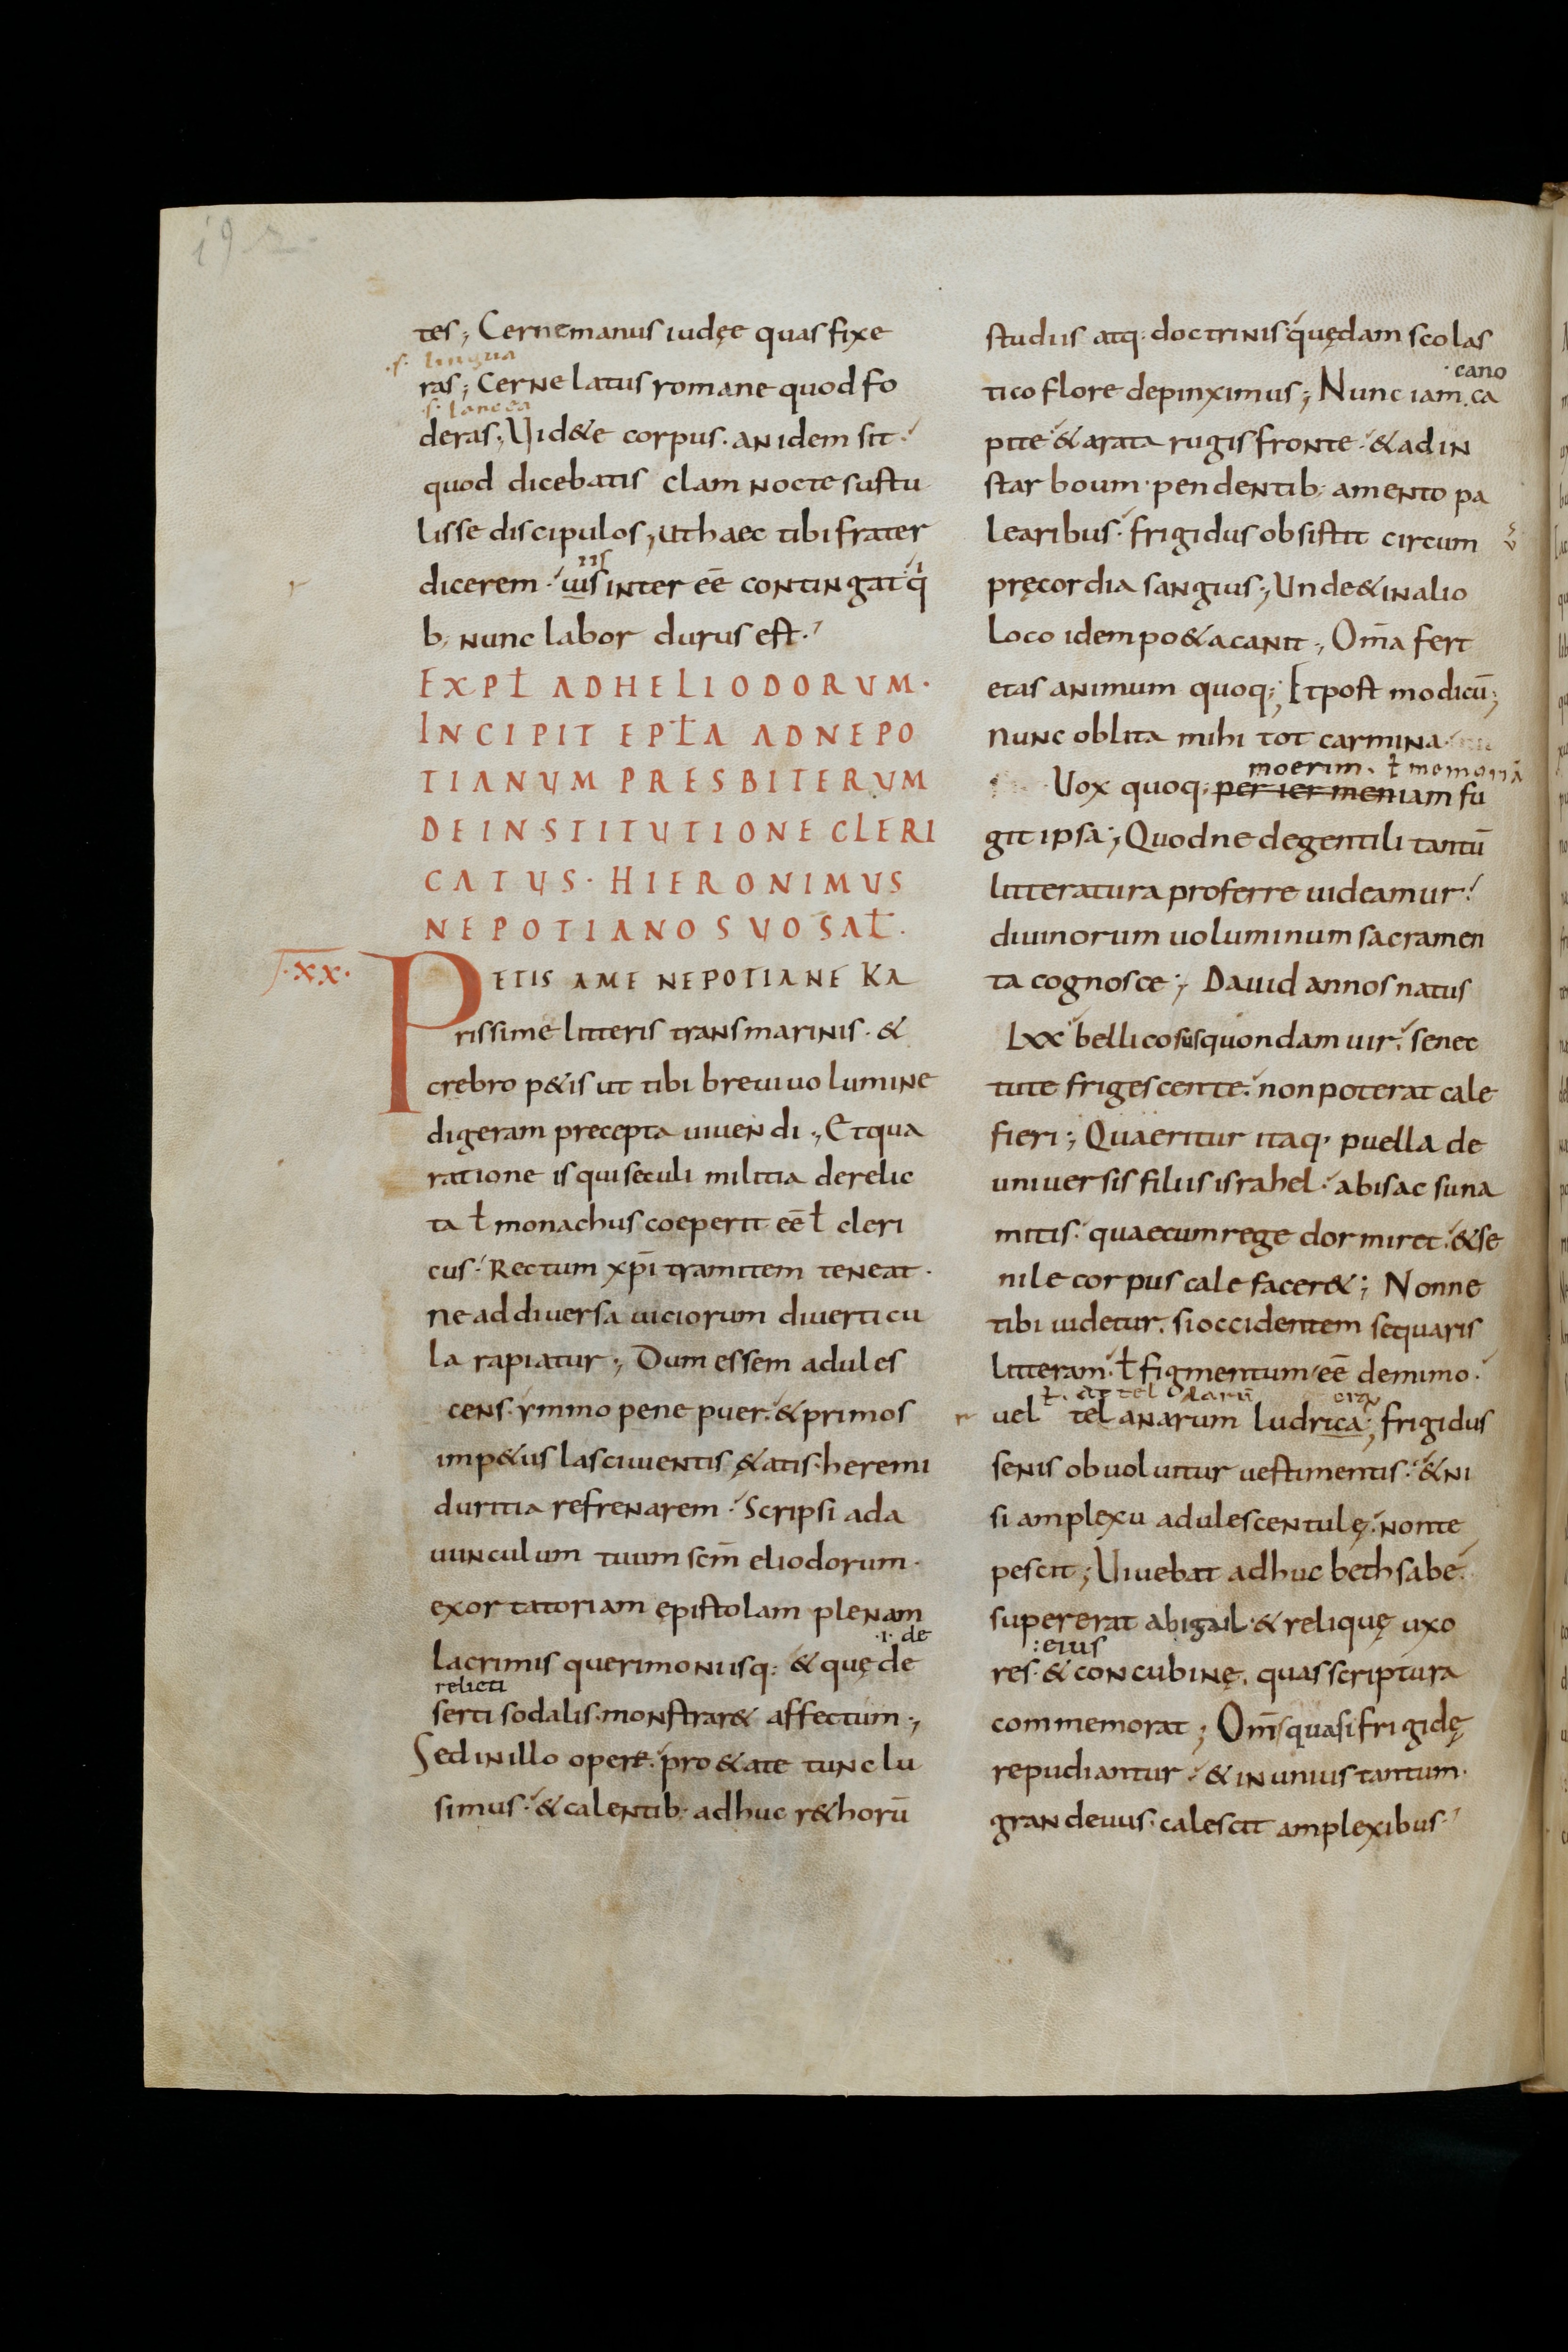 192
tes; Cerne manus iudęe quas fixe
.s. lingua
ras; Cerne latus romane quod fo
.s. lancea
deras; Uid&e corpus. an idem sit.
quod dicebatis clam nocte sustu
lisse discipulos; ut haec tibi frater
iis
dicerem. uiis inter eē contingat. qi
b; nunc labor durus est.
EXPŁ AD HELIODORUM.
INCIPIT EPŁA AD NEPO
TIANUM PRESBITERUM
DE INSTITUTIONE CLERI
CATUS. HIERONIMUS
NEPOTIANO SUO SAŁ.
.xx.
PETIS A ME NEPOTIANE KA
rissime litteris transmarinis. &
crebro p&is ut tibi breui uolumine
digeram precepta uiuendi; Et qua
ratione is qui seculi militia derelic
ta ł monachus coeperit eē ł cleri
cus. Rectum xp̄i tramitem teneat.
ne ad diuersa uiciorum diuerticu
la rapiatur; Dum essem adules
cens. ymmo pene puer. & primos
imp&us lasciuientis &atis. heremi
duritia refrenarem. Scripsi ad a
uunculum tuum scm̄ eliodorum.
exortatoriam epistolam plenam
.i. de
lacrimis querimoniisq: & quę de
relicti
serti sodalis. monstrar& affectum;
Sed in illo opere. pro &ate tunc lu
simus. & calentib; adhuc r&horū
studiis atq. doctrinis quędam scolas
cano
tico flore depinximus; Nunc iam. ca
pite. & arata rugis fronte. & ad in
star boum. pendentib; a mento pa
learibus. frigidus obsistit circum
pręcordia sangius; Unde & in alio
loco idem po&a canit; Om̄a fert
etas animum quoq; Et post modicū;
nunc oblita mihi tot carmina
moerim. ł memoriā
Uox quoq; per iermeniam fu
git ipsa; Quod ne de gentili tantū
litteratura proferre uideamur.
diuinorum uoluminum sacramen
ta cognosce; Dauid annos natus
Lxx bellicosus quondam uir. senec
tute frigescente. non poterat cale
fieri; Quaeritur itaq. puella de
uniuersis filiis israhel. abisac suna
mitis. quae cum rege dormiret. & se
nile corpus calefacer&; Nonne
tibi uidetur. si occidentem sequaris
litteram. ł figmentum eē de mimo.
uel telanarum ludrica; frigidus
senis obuoluitur uestimentis. & ni
si amplexu adulescentulę. non te
pescit; Uiuebat adhuc bethsabe.
supererat abigail. & reliquę uxo
:eius
res. & concubinę. quas scriptura
commemorat; Om̄s quasi frigidę
repudiantur. & in unius tantum.
grandeuus. calescit amplexibus.